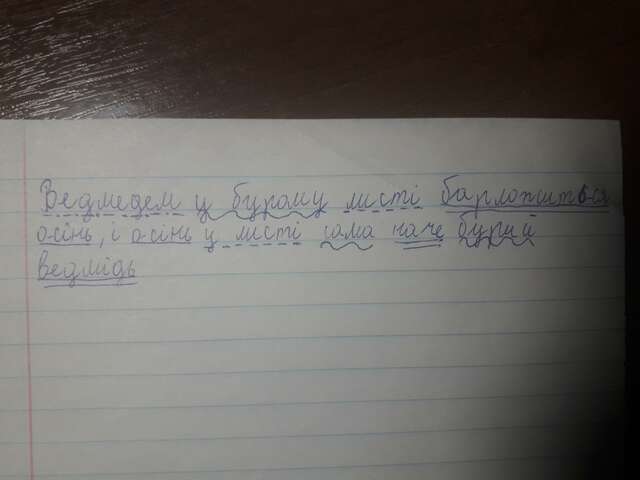 Ведмедем у бурому листі барложиться
осінь, і осінь у листі сама наче бурий
ведмідь